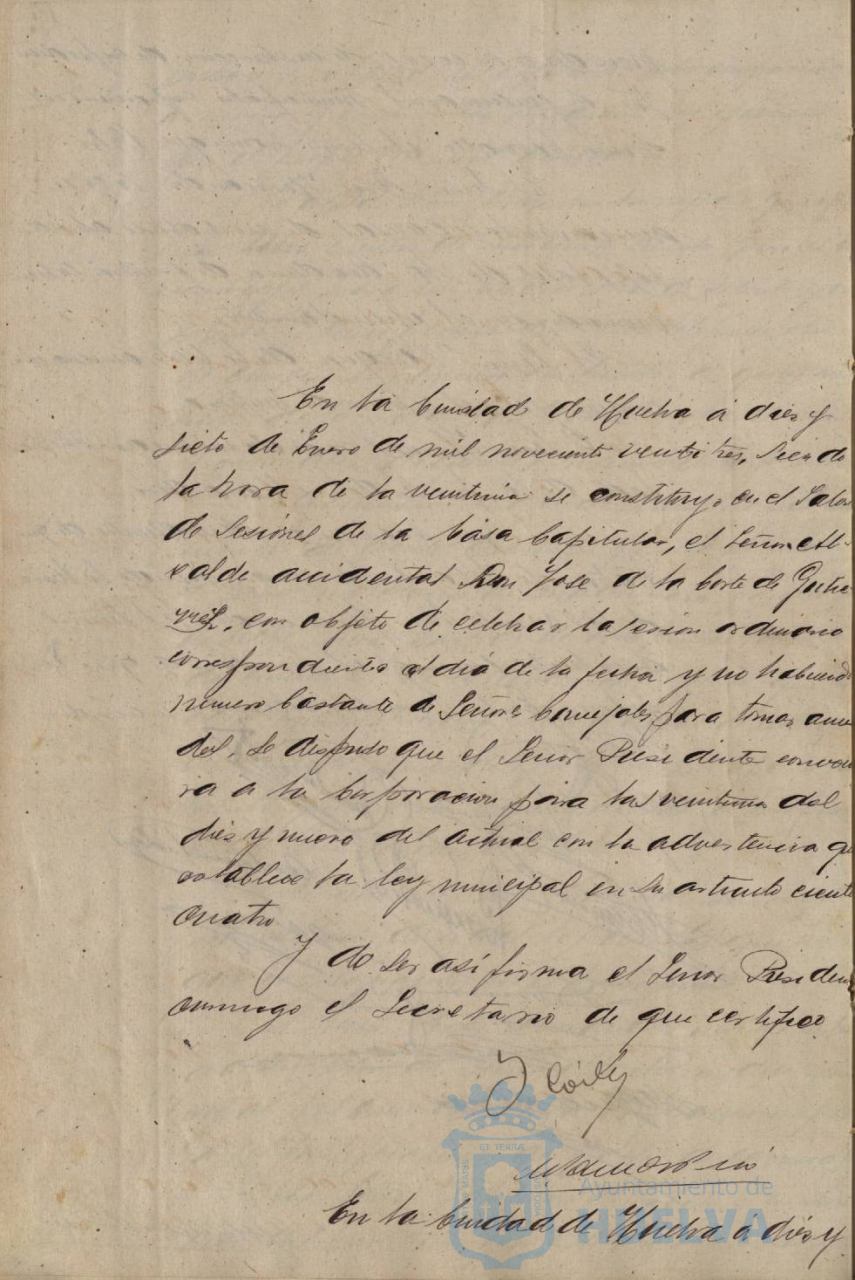 En la Ciudad de Huelva á dies y
siete de Enero de mil noveciento veinti tres, siendo
la hora de la veintiuna se constituyo en el Salon
de Sesiones de la Casa Capitular, el Señor Al-
calde accidental Don Jose de la Corte de Gutie-
rrez, con objeto de celebrar la sesion ordinaria
correspondiente al dia de la fecha y no habiendo
numero bastante de Señores Concejales para tomar acuer
dos, se dispuso que el Señor Presidente convoca
ra a la Corporacion para las veintiuna del
dies y nueve del actual con la advertencia que
establece la ley municipal en su articulo ciento
cuatro
Y de ser asi firma el Señor Presidente
conmigo el Secretario de que certifico
En la Ciudad de Huelva á dies y
Ayuntamiento de
HUELVA